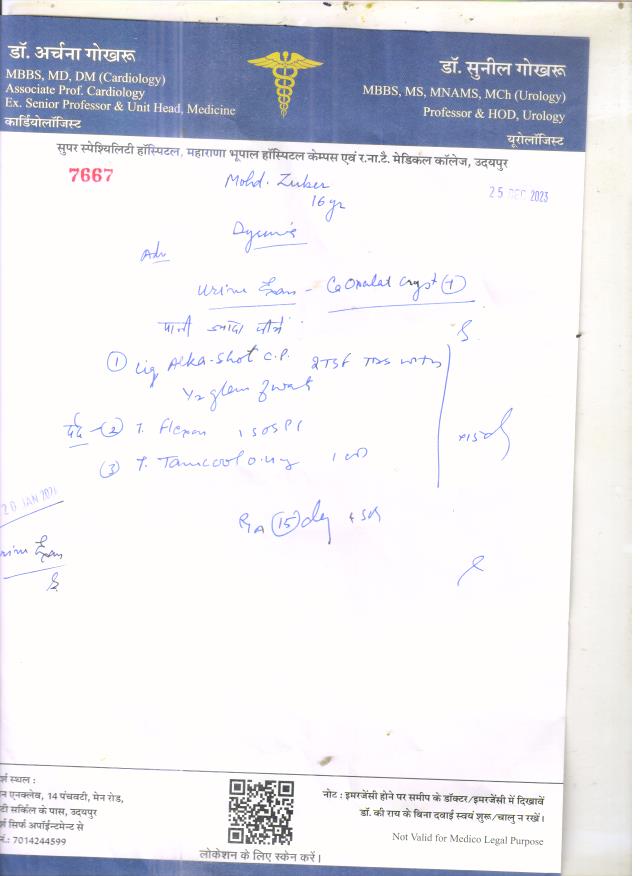 डॉ. अर्चना गोखरू
MBBS, MD, DM (Cardiology)
Associate Prof. Cardiology
Ex. Senior Professor & Unit Head, Medicine
कार्डियोलॉजिस्ट
डॉ. सुनील गोखरू
MBBS, MS, MNAMS, MCh (Urology)
Professor & HOD, Urology
यूरोलॉजिस्ट
सुपर स्पेश्यिलिटी हॉस्पिटल, महाराणा भूपाल हॉस्पिटल केम्पस एवं र.ना.टै. मेडिकल कॉलेज, उदयपुर
7667
Mohd. Zuber
25 DEC 2023
16 yr
Adv
Urine Exam - Ca Oxalat Cryst (+)
पानी ज्यादा पीये
① Liq Alka-Shot C.P. 2TSF TDS with
1/2 glass of water
दर्द - ② T. Flexan 1 SOS
③ T. 1 OD
x15d
20 JAN 202
R/A (15) day
rine Exam
र्श स्थल :
न एनक्लेव, 14 पंचवटी, मेन रोड,
टी सर्किल के पास, उदयपुर
र्श सिर्फ अपॉईन्टमेन्ट से
नं.: 7014244599
लोकेशन के लिए स्केन करें।
नोट : इमरजेंसी होने पर समीप के डॉक्टर/इमरजेंसी में दिखावें
डॉ. की राय के बिना दवाई स्वयं शुरू/चालु न रखें।
Not Valid for Medico Legal Purpose